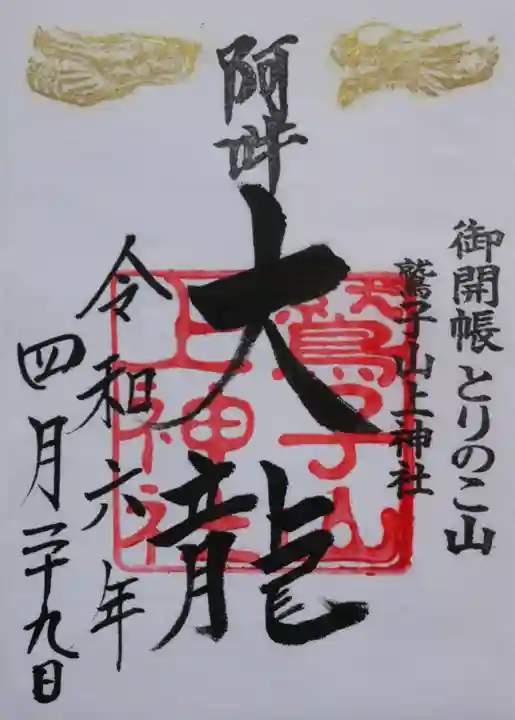 御開帳 とりのこ山
鷲子山上神社
阿吽
大龍
令和六年
四月二十九日
天 鷲子山
上神社